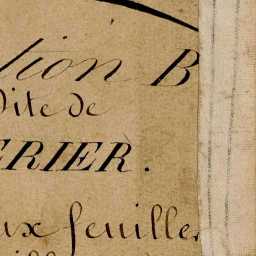 tion B
dite de
ERIER.
ux feuilles